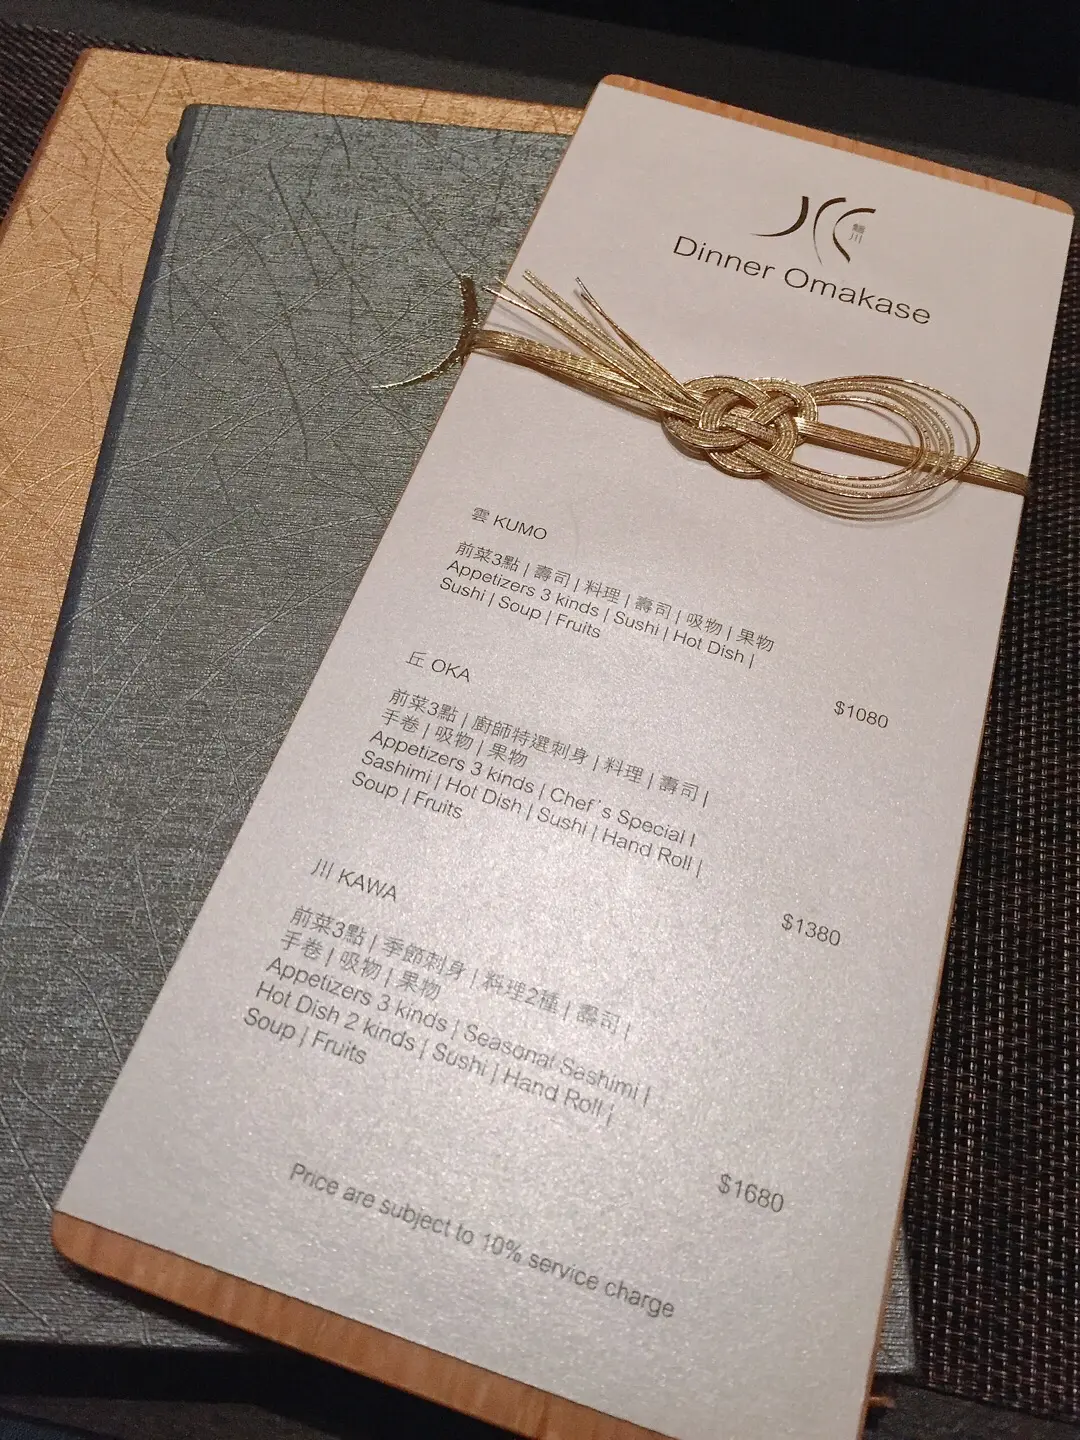 川
Dinner Omakase
雲 KUMO
前菜3點 | 壽司 | 料理 | 壽司 | 吸物 | 果物
Appetizers 3 kinds | Sushi | Hot Dish |
Sushi | Soup | Fruits
$1080
丘 OKA
前菜3點 | 廚師特選刺身 | 料理 | 壽司 |
手卷 | 吸物 | 果物
Appetizers 3 kinds | Chef´s Special |
Sashimi | Hot Dish | Sushi | Hand Roll |
Soup | Fruits
$1380
川 KAWA
前菜3點 | 季節刺身 | 料理2種 | 壽司 |
手卷 | 吸物 | 果物
Appetizers 3 kinds | Seasonal Sashimi |
Hot Dish 2 kinds | Sushi | Hand Roll |
Soup | Fruits
$1680
Price are subject to 10% service charge